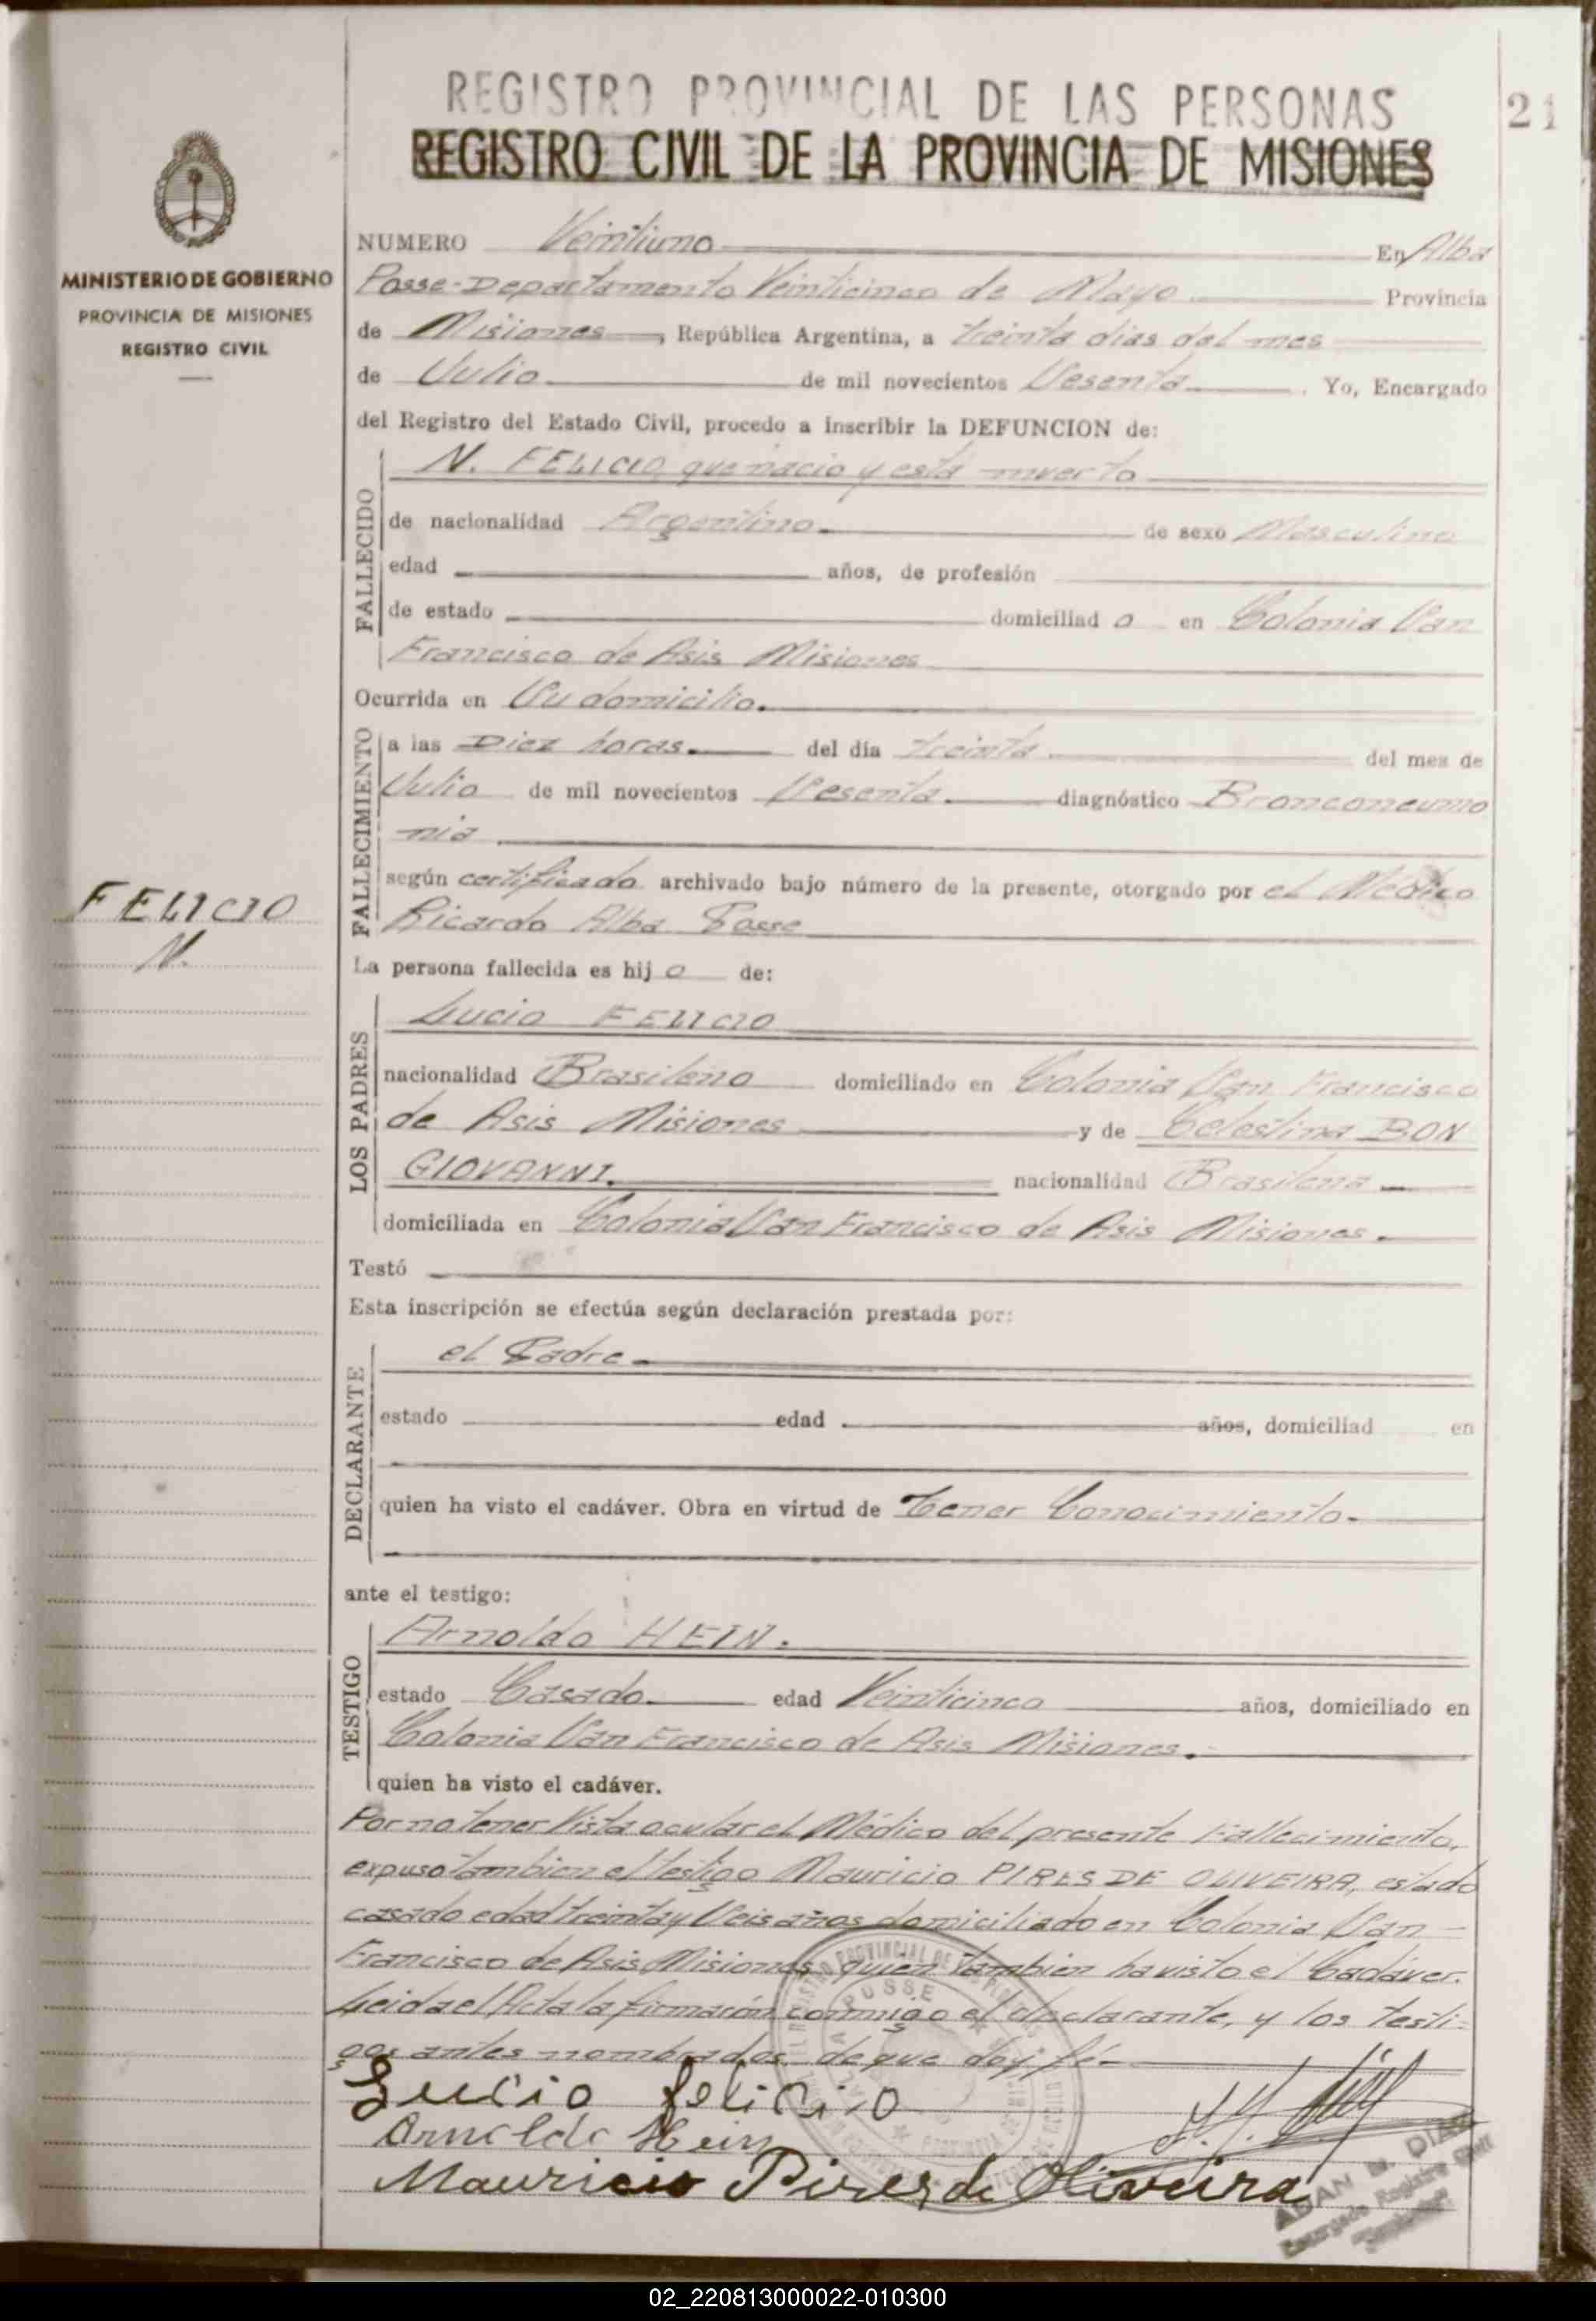 REGISTRO PROVINCIAL DE LAS PERSONAS
21
REGISTRO CIVIL DE LA PROVINCIA DE MISIONES
MINISTERIO DE GOBIERNO
PROVINCIA DE MISIONES
REGISTRO CIVIL
NUMERO Veintiuno En Alba
Posse-Departamento Veinticinco de Mayo Provincia
de Misiones, República Argentina, a treinta dias del mes
de Julio de mil novecientos Sesenta. Yo, Encargado
del Registro del Estado Civil, procedo a inscribir la DEFUNCION de:
FALLECIDO
N. FELICIO, que nacio y esta muerto
de nacionalidad Argentino. de sexo Masculino
edad años, de profesión
de estado domiciliad o en Colonia San
Francisco de Asis Misiones
Ocurrida en Su domicilio.
FALLECIMIENTO
a las Diez horas. del día treinta del mes de
Julio de mil novecientos Sesenta. diagnóstico Bronconeumo
nia
según certificado archivado bajo número de la presente, otorgado por el Médico
Ricardo Alba Posse
FELICIO
N.
La persona fallecida es hij o de:
LOS PADRES
Lucio FELICIO
nacionalidad Brasileño domiciliado en Colonia San Francisco
de Asis Misiones y de Celestina BON
GIOVANNI. nacionalidad Brasilena
domiciliada en Colonia San Francisco de Asis Misiones.
Testó
Esta inscripción se efectúa según declaración prestada por:
DECLARANTE
el Padre
estado edad años, domiciliad en
quien ha visto el cadáver. Obra en virtud de Tener Conocimiento.
ante el testigo:
TESTIGO
Arnoldo HEIN.
estado Casado. edad Veinticinco años, domiciliado en
Colonia San Francisco de Asis Misiones.
quien ha visto el cadáver.
Por no tener Vista ocular el Médico del presente Fallecimiento,
expuso tambien el testigo Mauricio PIRES DE OLIVEIRA, estado
casado edad treinta y Seis años domiciliado en Colonia San
Francisco de Asis Misiones quien tambien ha visto el Cadáver.
Leida el Acta la firmarón conmigo el declarante, y los testi-
gos antes nombrados de que doy fé
Lucio felicio
Arnoldo Hein
Mauricio Pires de Oliveira
ADAN M. DIAZ
Encargado Registro Civil
02_220813000022-010300